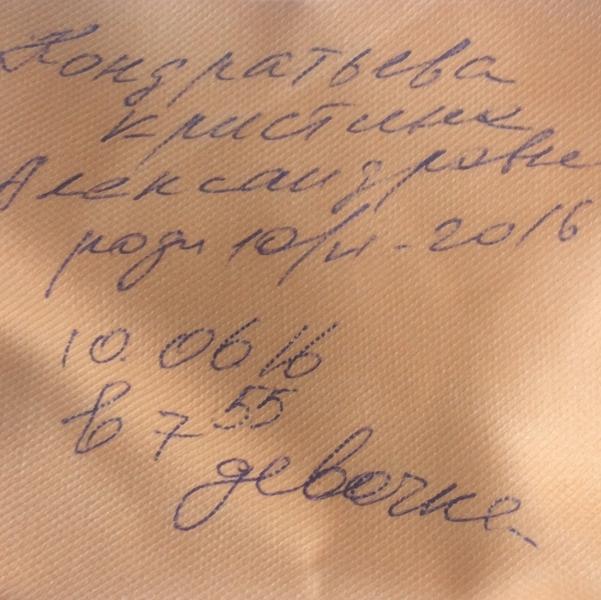 Кондратьева
Кристина
Александровне
роди 10/VI-2016
10 06 16
в 7 55
девочке